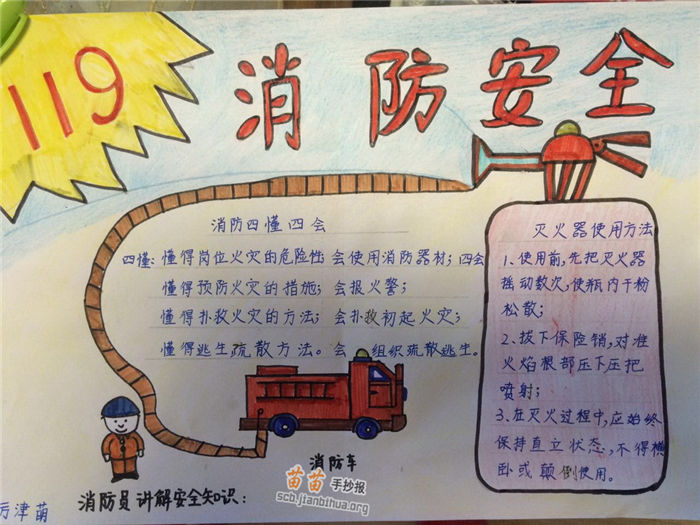 119
消防安全
消防四懂四会
四懂：懂得岗位火灾的危险性 会使用消防器材；四会
懂得预防火灾的措施；会报火警；
懂得扑救火灾的方法；会扑救初起火灾；
懂得逃生疏散方法。会 组织疏散逃生。
灭火器使用方法
1、使用前，先把灭火器
摇动数次，使瓶内干粉
松散；
2、拔下保险销，对准
火焰根部压下压把
喷射；
3、在灭火过程中，应始终
保持直立状态，不得横
卧或颠倒使用。
消防车
消防员讲解安全知识：
津萌
苗苗手抄报
scb.jianbihua.org